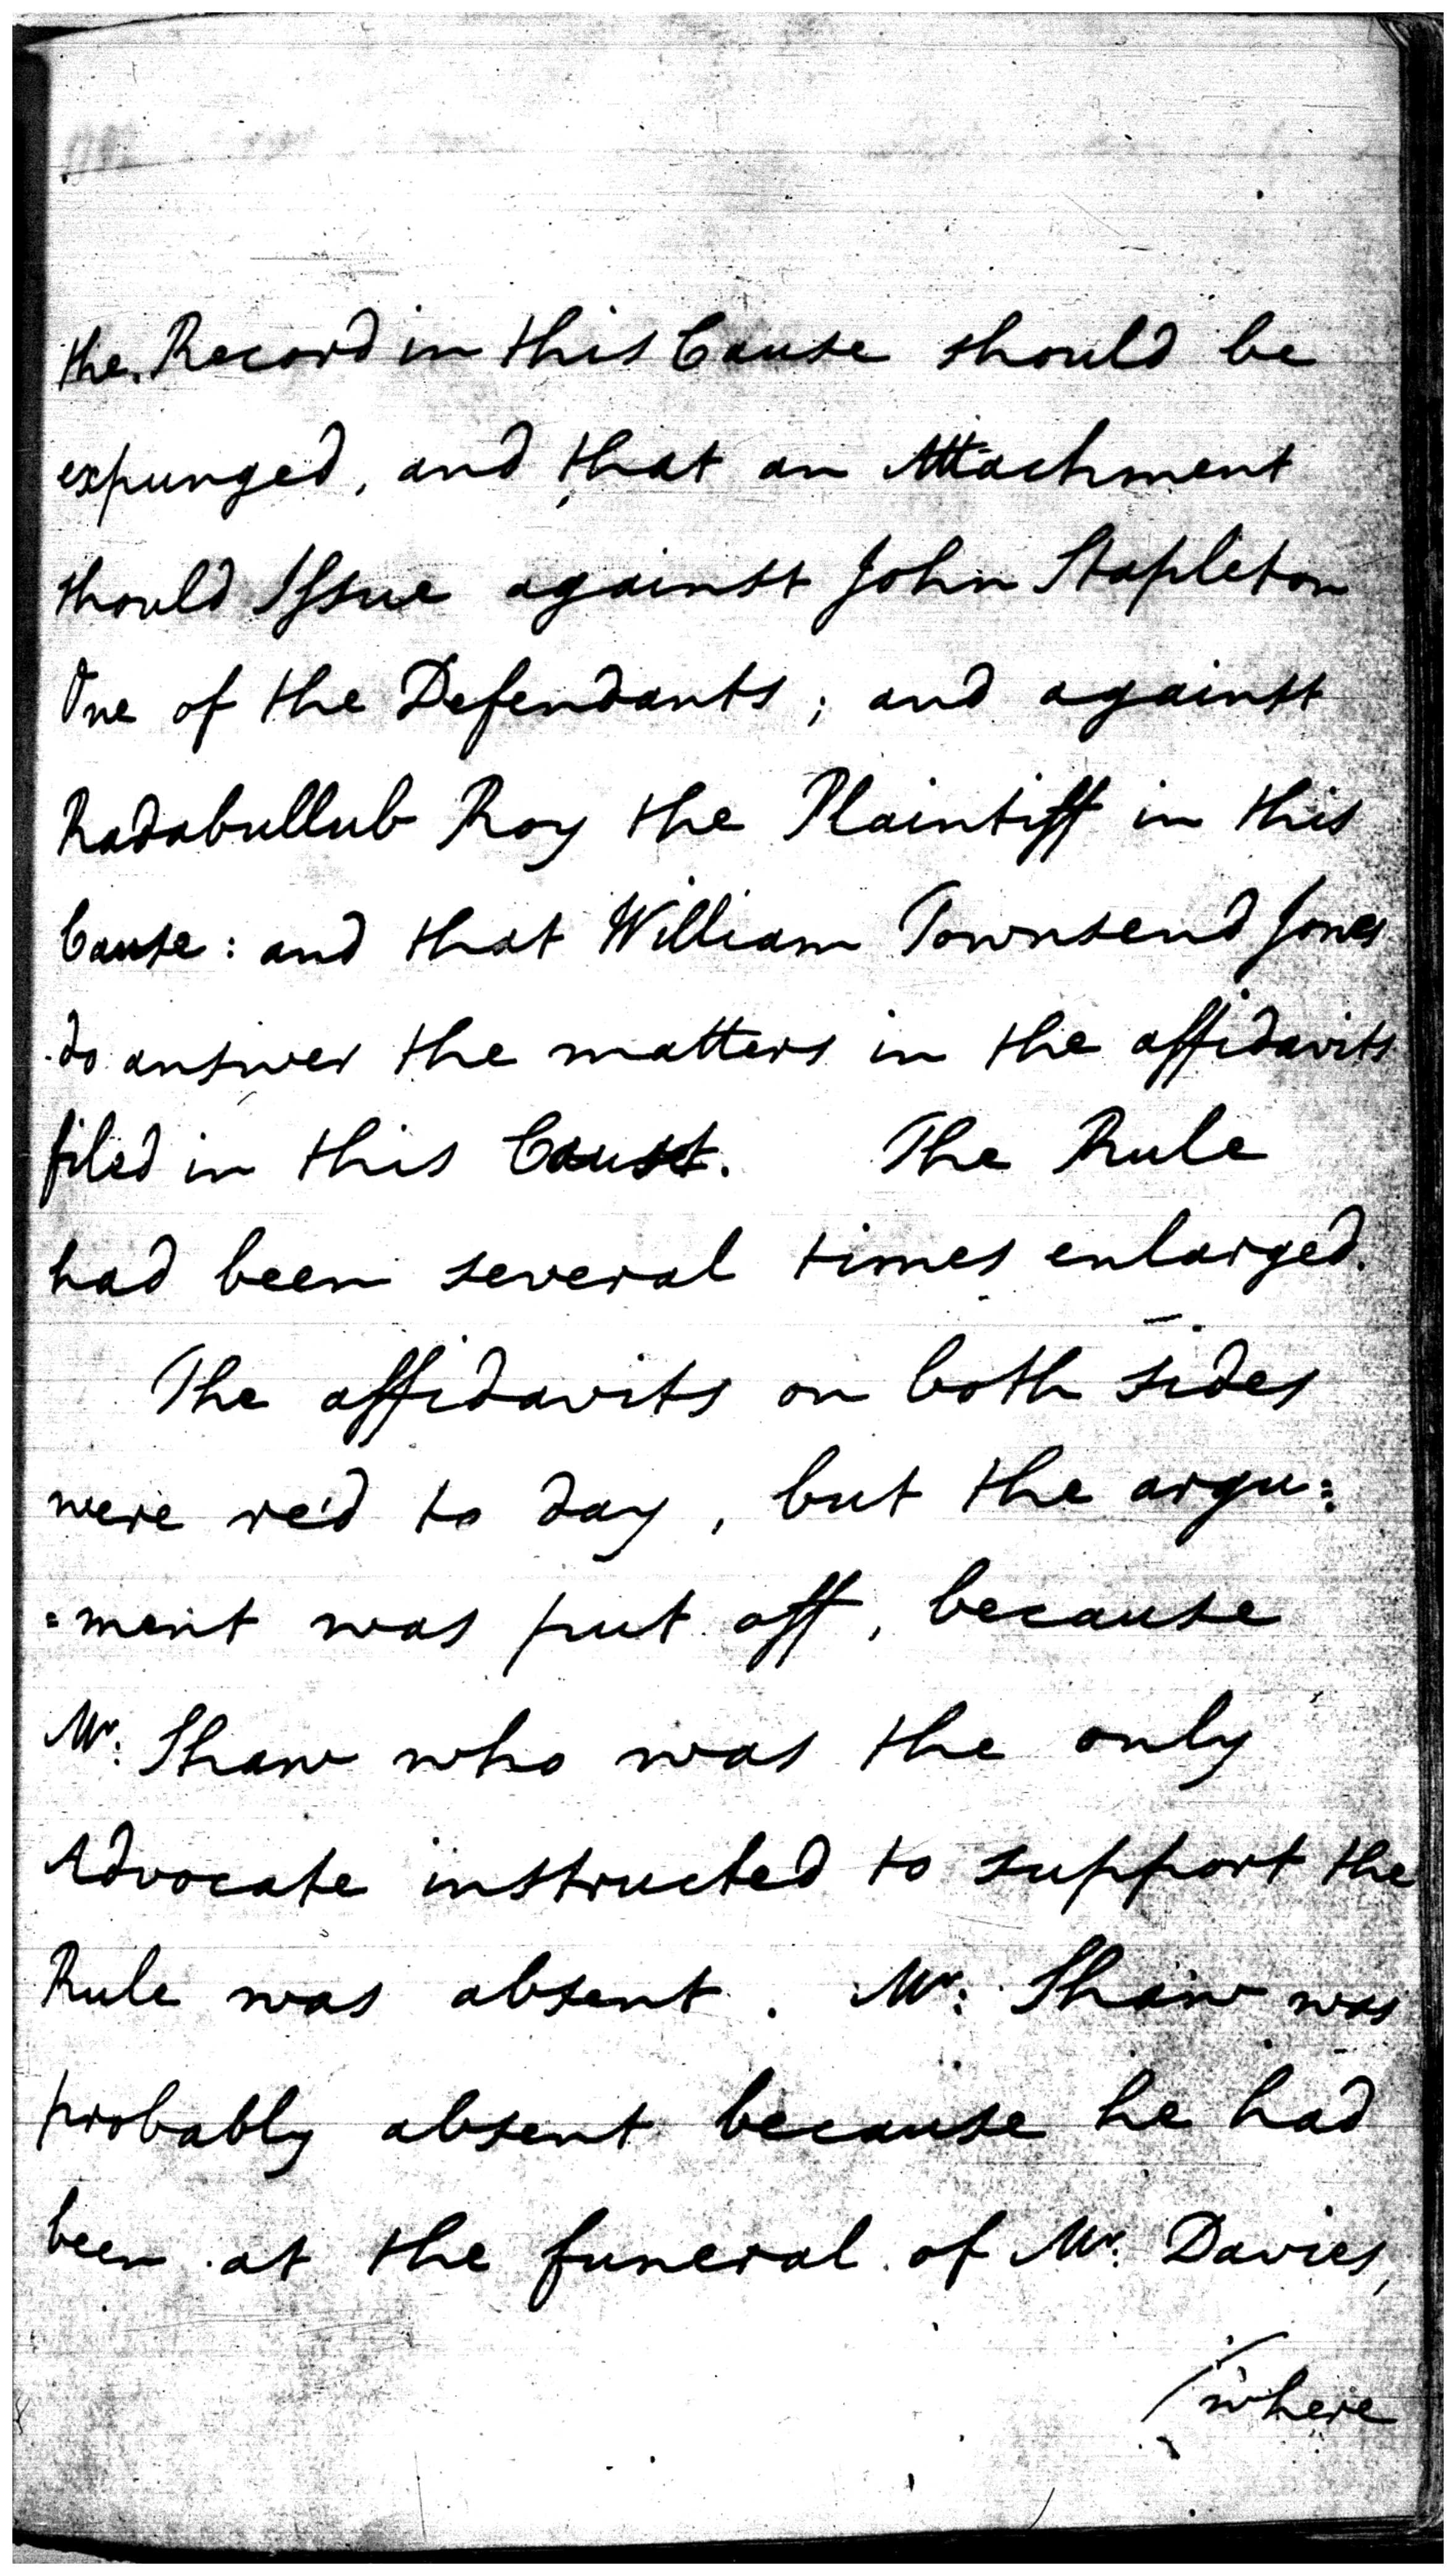 the Record in this Cause should be
expunged, and that an Attachment
should Issue against John Stapleton
One of the Defendants; and against
Radabullub Roy the Plaintiff in this
Cause: and that William Townsend Jones
do answer the matters in the affidavits
filed in this Cause. The Rule
had been several times enlarged.
The affidavits on both sides
were re'd to day, but the argu=
=ment was put off, because
Mr: Shaw who was the only
Advocate instructed to support the
Rule was absent. Mr: Shaw was
probably absent because he had
been at the funeral of Mr: Davies,
/where